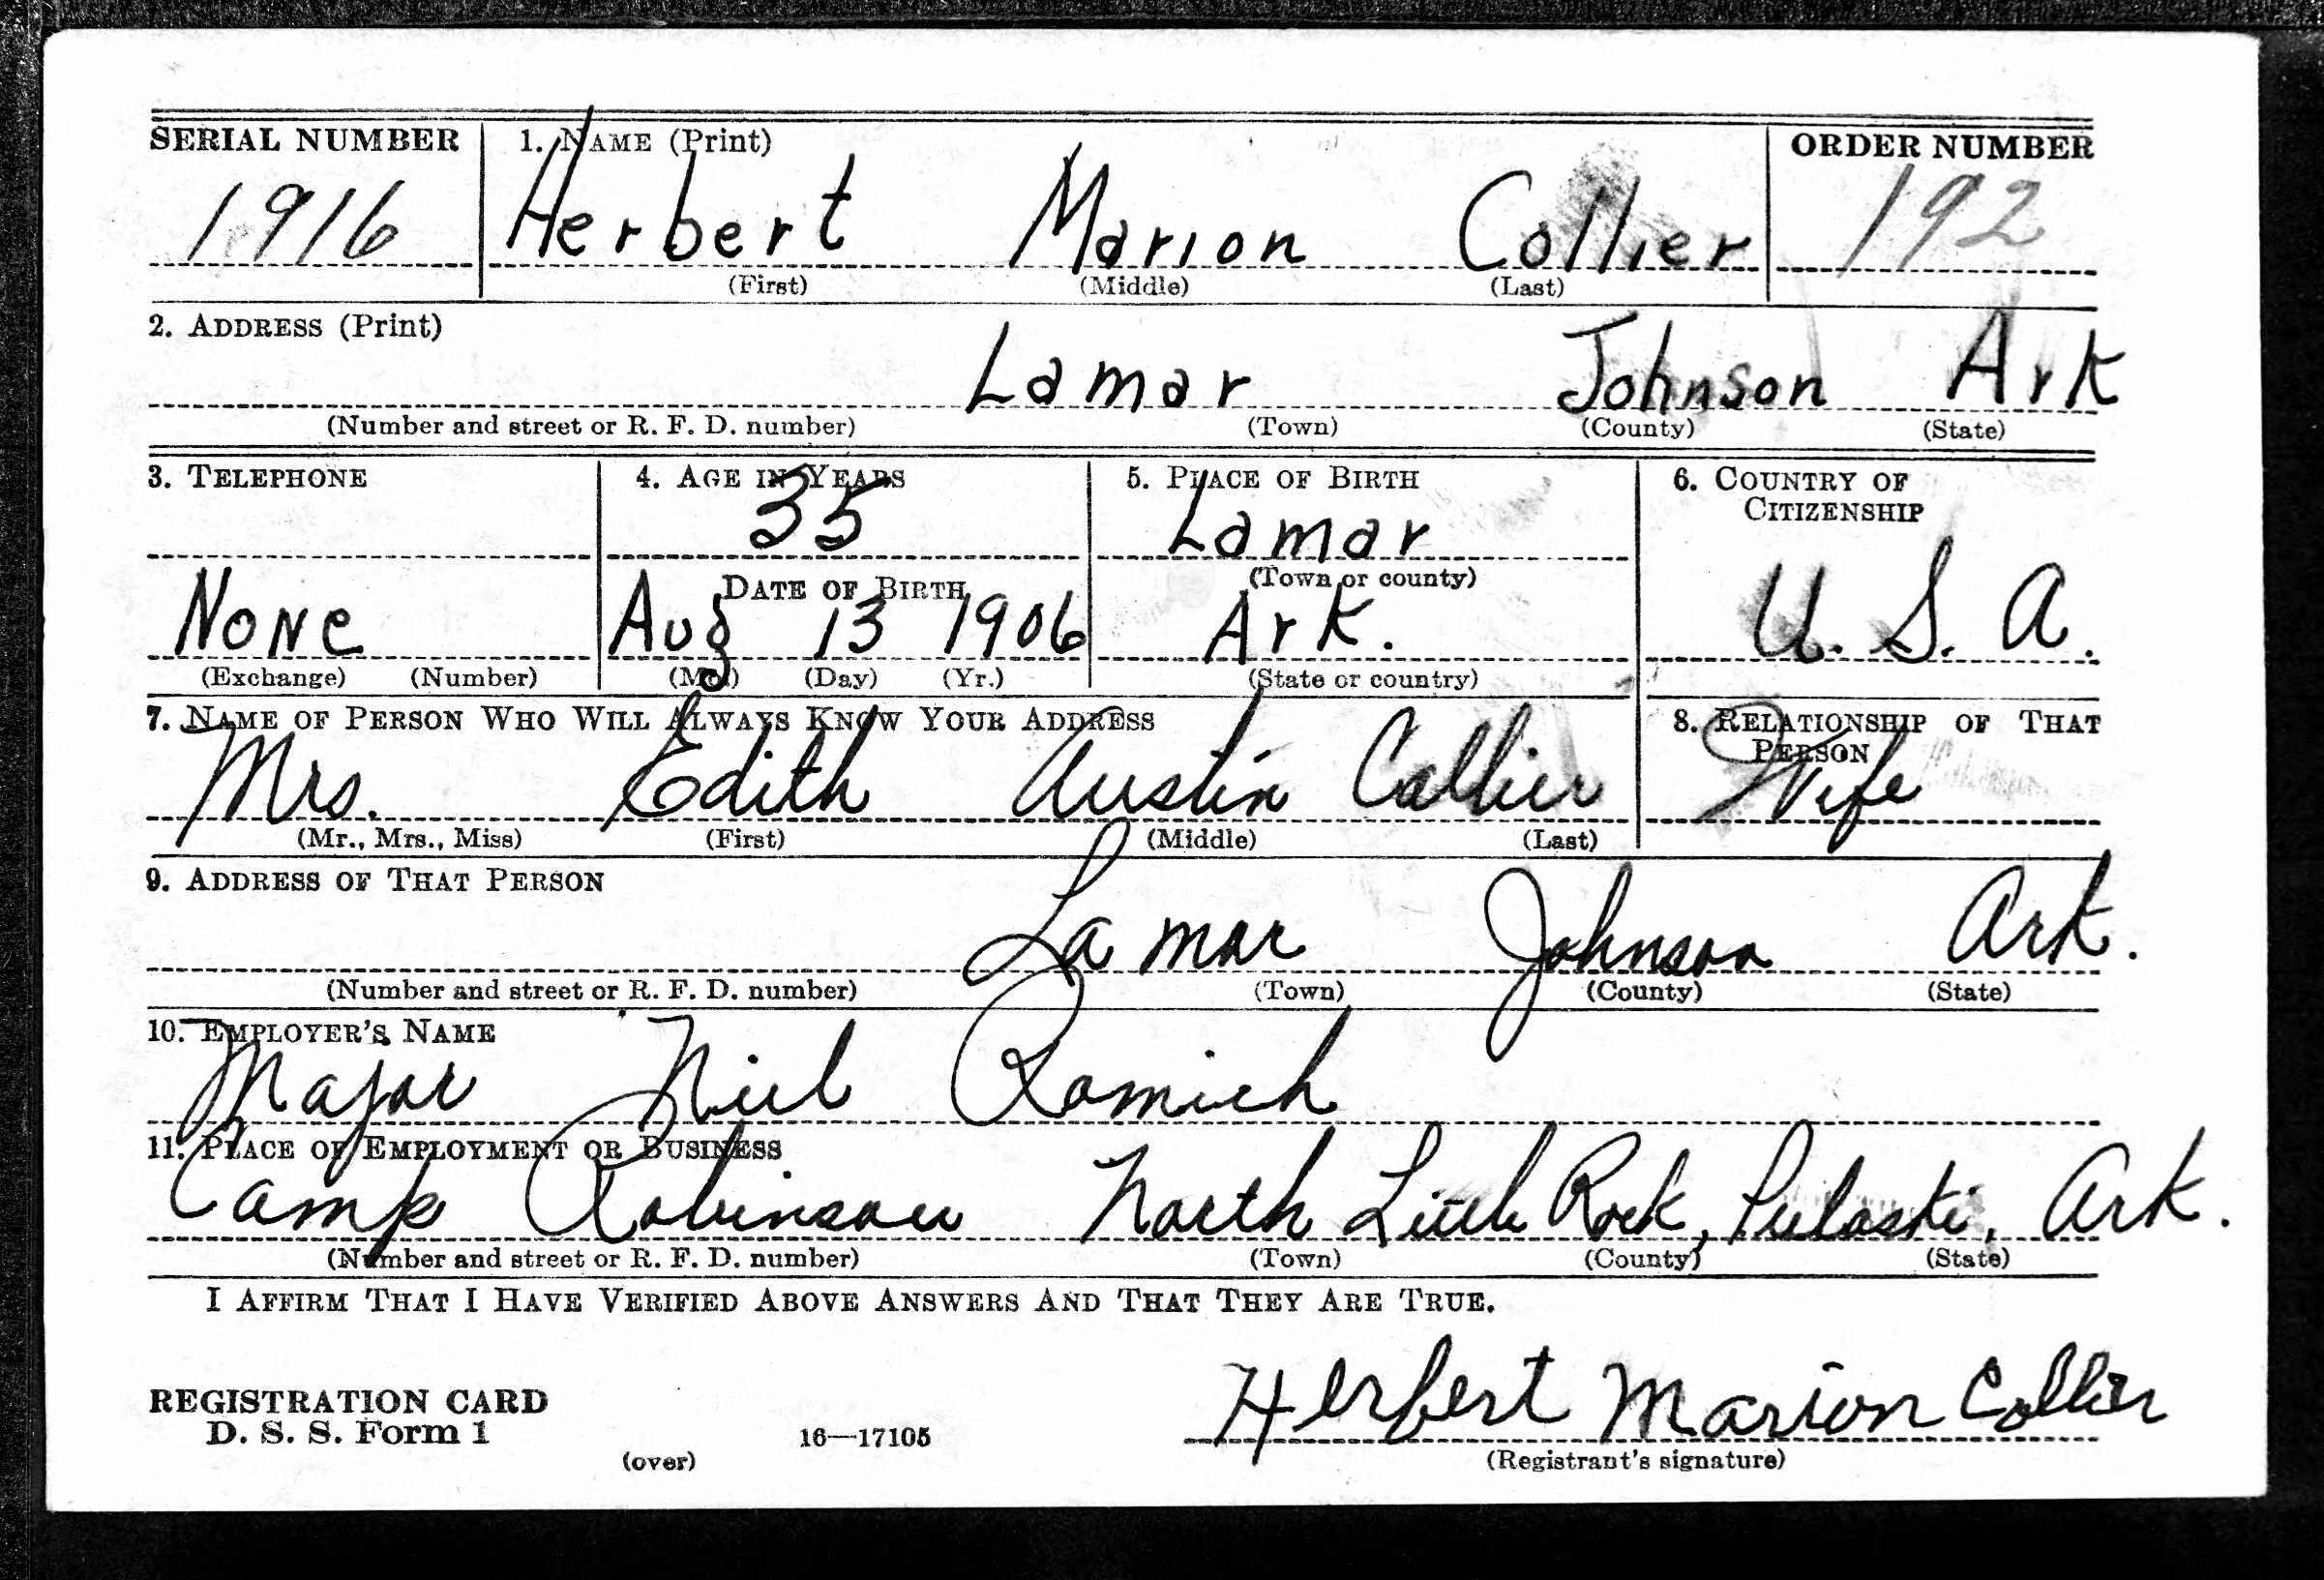 SERIAL NUMBER 1. NAME (Print) ORDER NUMBER
1916 Herbert Marion Collier 192
(First) (Middle) (Last)
2. ADDRESS (Print)
Lamar Johnson Ark
(Number and street or R. F. D. number) (Town) (County) (State)
3. TELEPHONE 4. AGE IN YEARS 5. PLACE OF BIRTH 6. COUNTRY OF
CITIZENSHIP
35 Lamar
DATE OF BIRTH (Town or county)
None Aug 13 1906 Ark. U. S. A.
(Exchange) (Number) (Mo.) (Day) (Yr.) (State or country)
7. NAME OF PERSON WHO WILL ALWAYS KNOW YOUR ADDRESS 8. RELATIONSHIP OF THAT
PERSON
Mrs. Edith Austin Collier Wife
(Mr., Mrs., Miss) (First) (Middle) (Last)
9. ADDRESS OF THAT PERSON
Lamar Johnson Ark.
(Number and street or R. F. D. number) (Town) (County) (State)
10. EMPLOYER'S NAME
Major Niel Romich
11. PLACE OF EMPLOYMENT OR BUSINESS
Camp Robinson North Little Rock, Pulaski, Ark.
(Number and street or R. F. D. number) (Town) (County) (State)
I AFFIRM THAT I HAVE VERIFIED ABOVE ANSWERS AND THAT THEY ARE TRUE.
Herbert Marion Collier
REGISTRATION CARD
D. S. S. Form 1 16—17105
(over) (Registrant's signature)